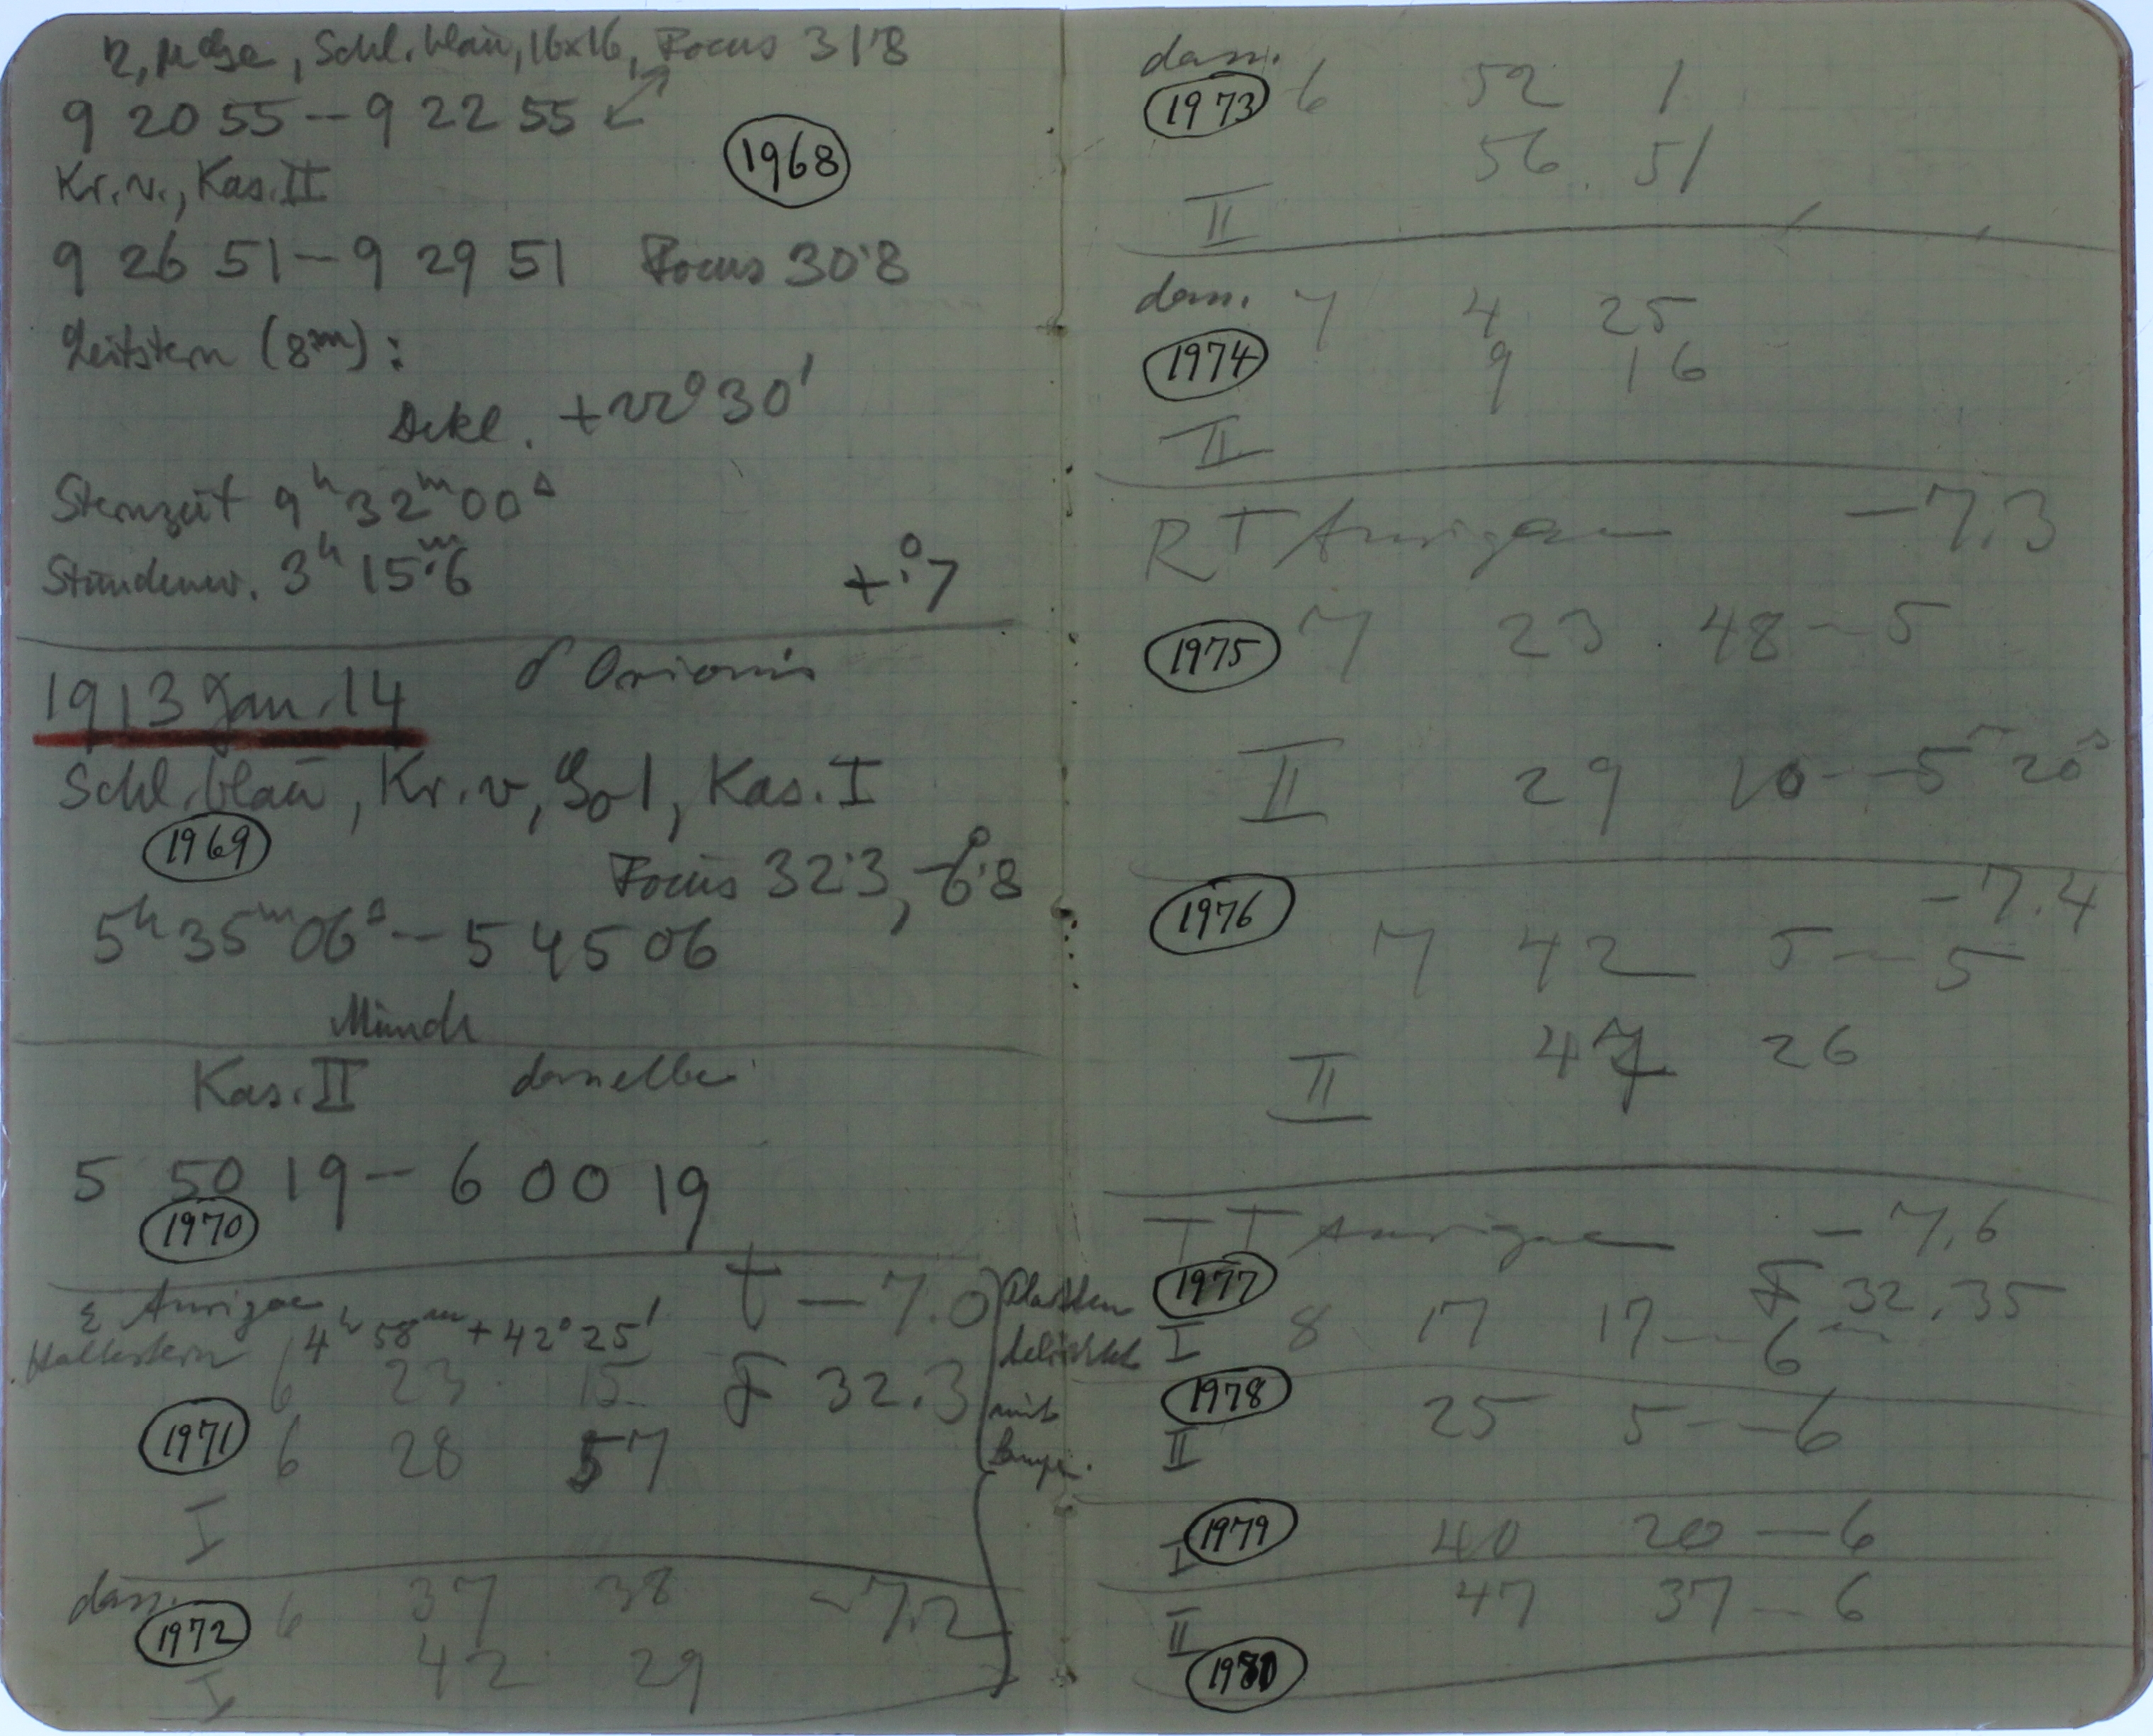 Schl. blau, 16x16, Focus 31.8
9 20 55 – 9 22 55
1968
Kr. v., Kas. II
9 26 51 – 9 29 51 Focus 30.8
Leitstern (8m):
Dekl. +22° 30'
Sternzeit 9h 32m 00s
Stundenw. 3h 15m.6 +0°.7
1913 Jan. 14 δ Orionis
Schl. blau, Kr. v, Kas. I
1969
Focus 32.3, -6°.8
5h 35m 06s – 5 45 06
Münch
Kas. II derselbe
5 50 19 – 6 00 19
1970
ε Aurigae t – 7.0
Haltestern 4h 58m + 42° 25'
6 23 15 F 32.3
1971 6 28 57
I
Platten
belichtet
mit
Lampe.
dass. 6 37 38 –7.2
1972
42 29
I
dass.
1973 6 52 1
56 51
II
dass. 7 4 25
1974 9 16
II
RT Aurigae –7.3
1975 7 23 48 – 5
II 29 10 – 5m 20s
1976 –7.4
7 42 5 – 5
47 26
II
TT Aurigae – 7.6
1977 F 32.35
I 8 17 17 – 6m
1978 25 5 – 6
II
1979 40 20 – 6
I
47 37 – 6
II
1980